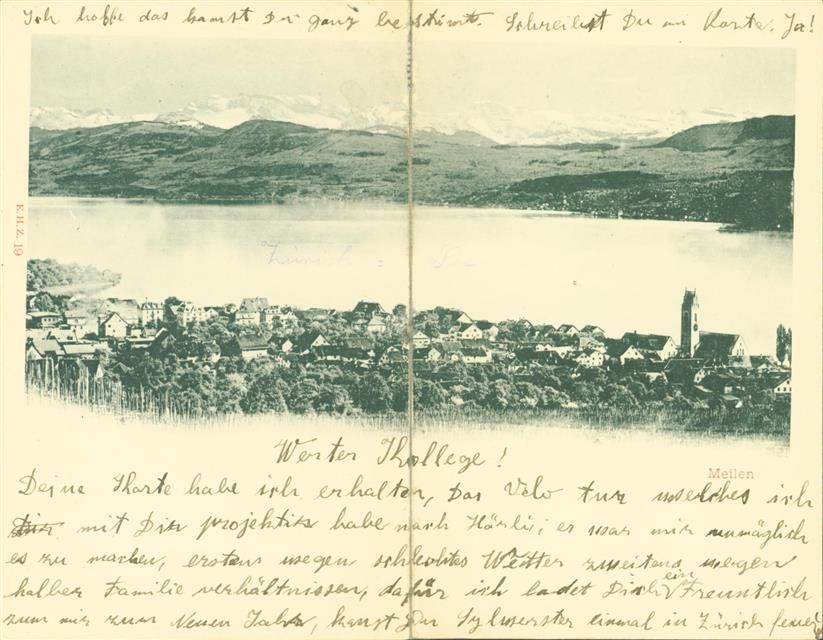 Ich hoffe das kannst Du ganz bestimt. Schreibst Du mi Karte. Ja!
E.H.Z. 19
Zürich =
Meilen
Werter Kollege!
Deine Karte habe ich erhalten, Das Velo tur welches ich
mit Dir projektirt habe nach Hörli; es war mir unmöglich
es zu machen, erstens wegen schlechtes Wetter zweitens wegen
halber Familie verhältnissen, dafür ich ladet Dich ein Freuntlich
zum mir zum Neuen Jahr, kanst Du Sylwerster einmal in Zürich feuer